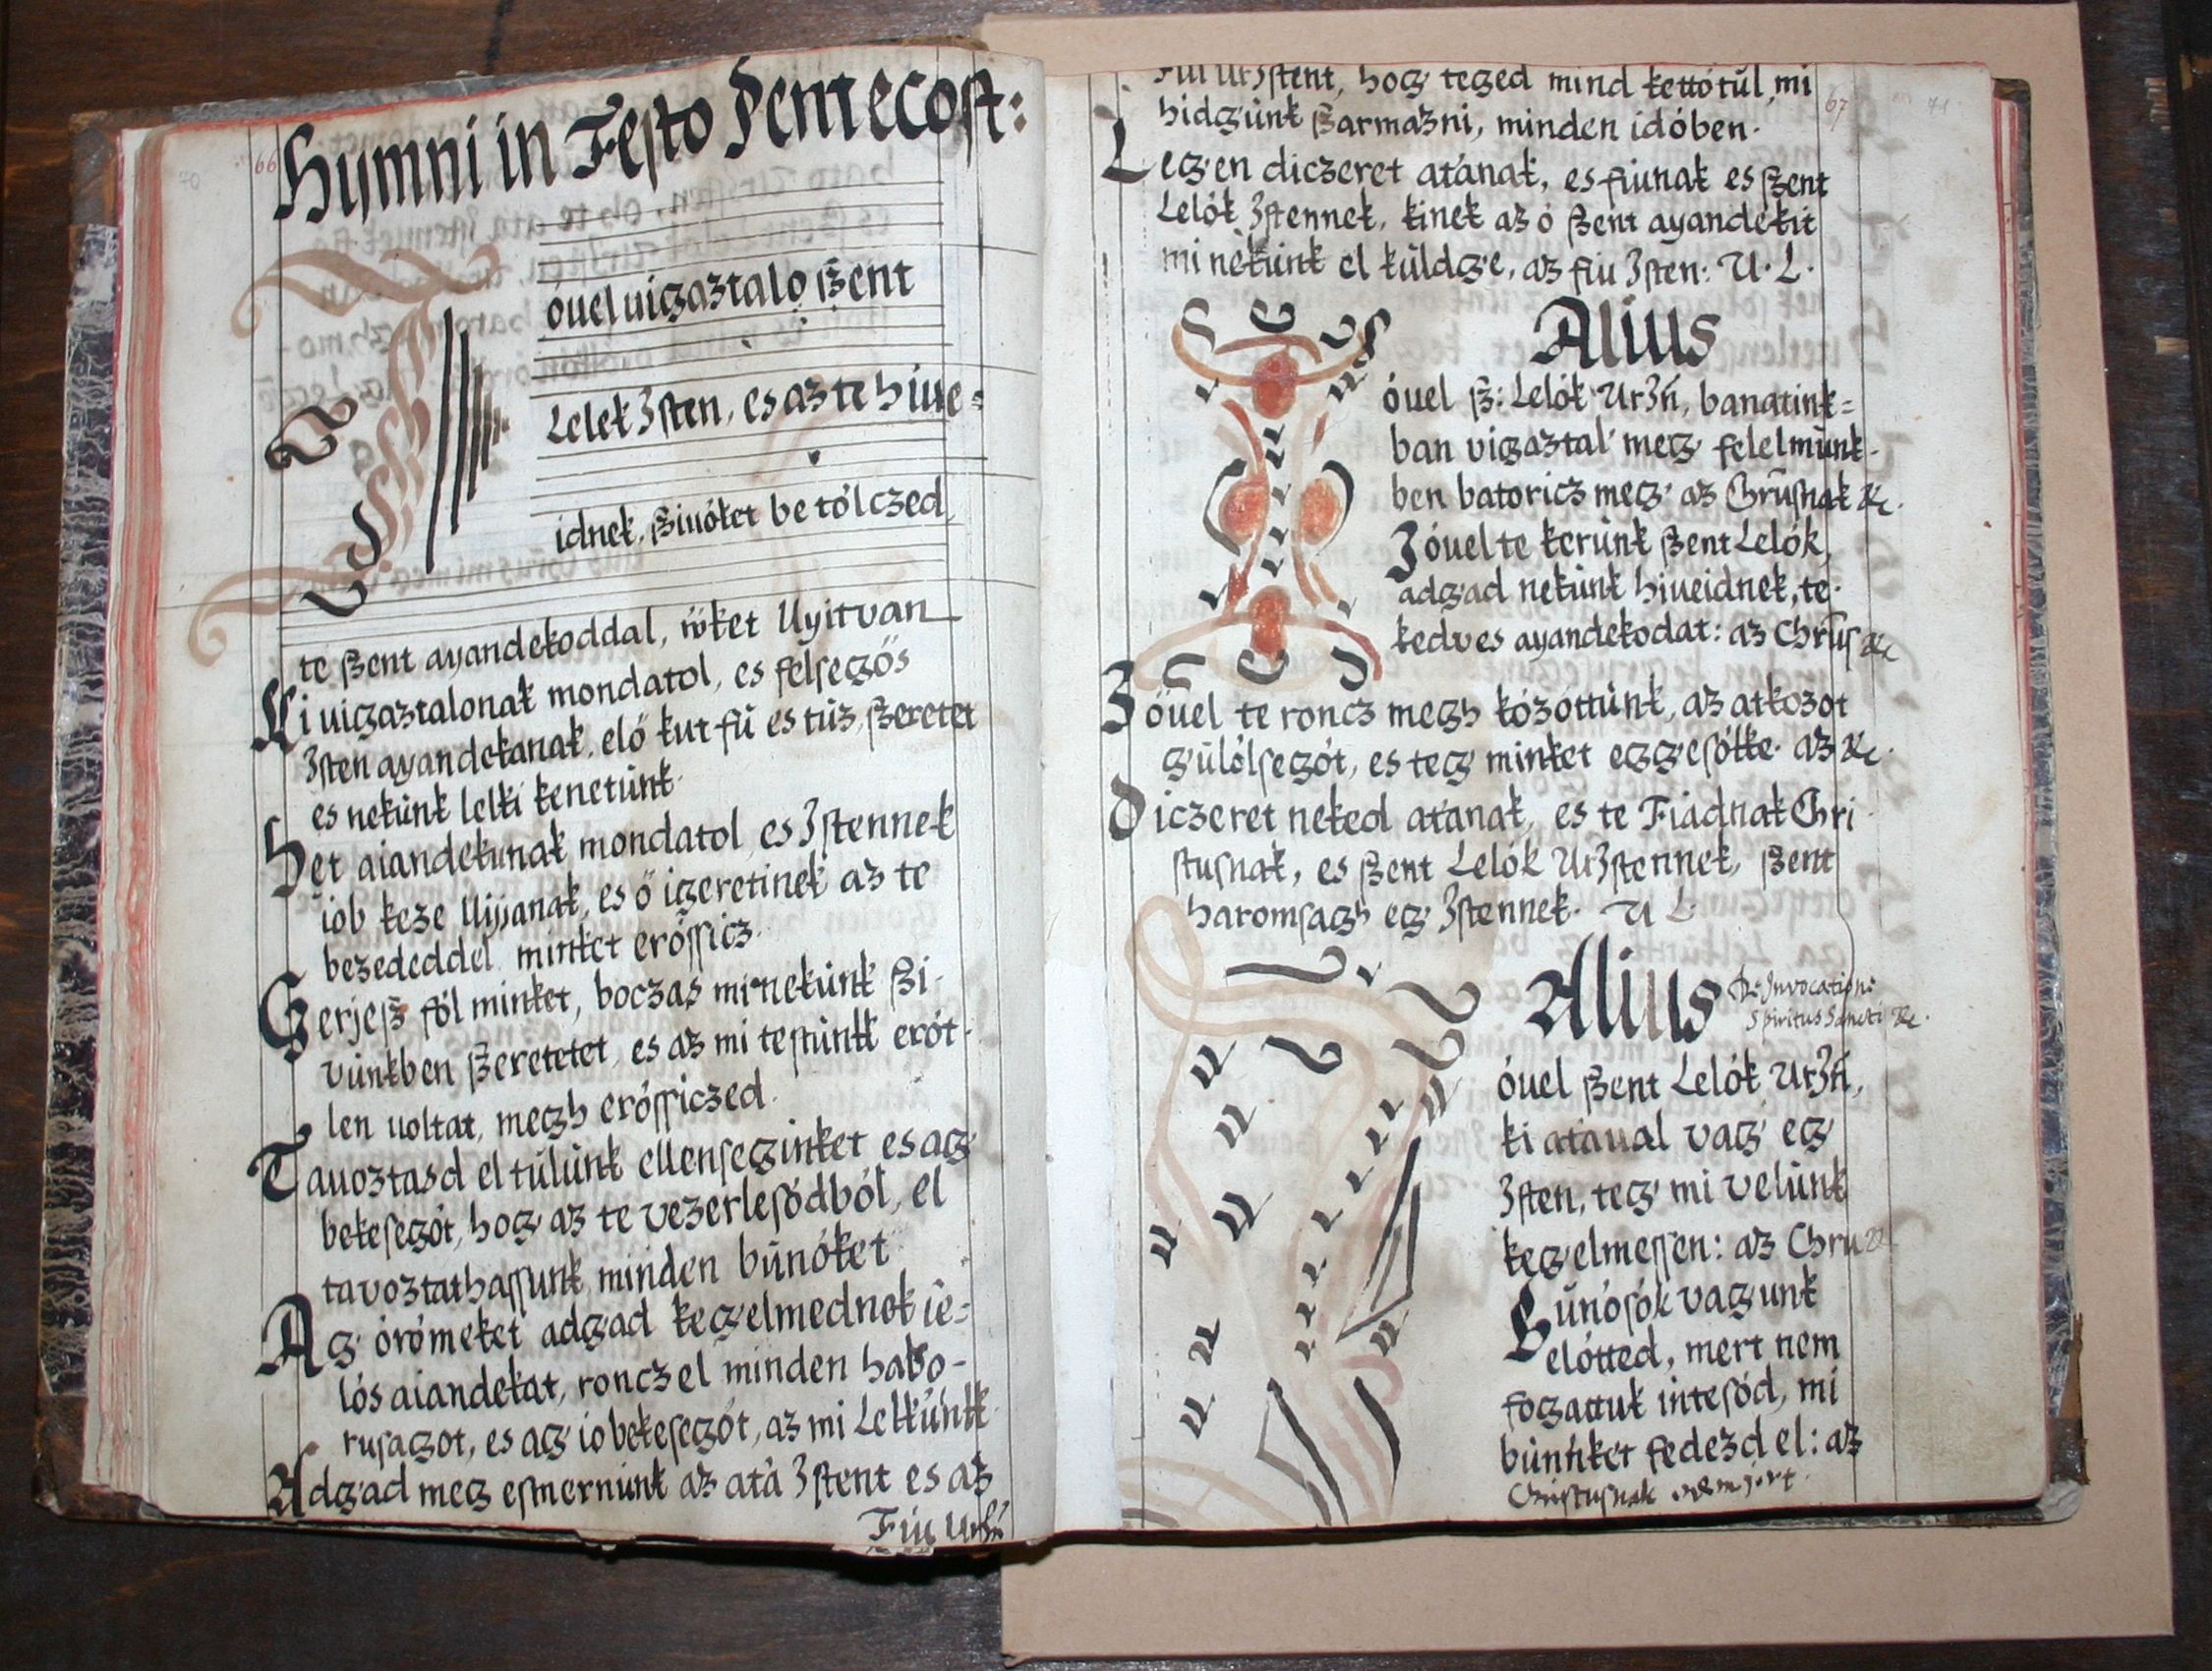 70 66
Hymni in Festo Pentecost:
Jóuel uigaztalo ßent
Lelek Isten, es az te hiue=
idnek, ßiuóket be tólczed
te ßent ayandekoddal, wket Uyitvan
Ki uigaztalonak mondatol, es felsegős
Isten ayandekanak, elő kut fü es tüz, ßeretet
es nekünk lelki kenetünk.
Het aiandekunak mondatol, es Istennek
iob keze Uyianak, es ő igeretinek az te
bezededdel minket erőssicz.
Gerjeß fől minket, boczas mi nekünk ßi-
vünkben ßeretetet, es az mi testünkk erót-
len uoltat, megh erőssiczed.
Tauoztasd el tülünk ellenseginket es ag
bekesegót, hog az te vezerlesódból, el
tavoztathassunk minden bünóket
Ag örömeket adgad kegelmednek ie=
lós aiandekat, roncz el minden habo-
rusagot, es ag io bekesegót, az mi Lelkünkk
Adgad meg esmernünk az atá Istent es az
Fiu UrIsń
67 71
Fiu UrIstent, hog teged mind kettótül, mi
hidgünk ßarmazni, minden idóben.
Legen diczeret atának, es fiunak es ßent
Lelók Istennek, kinek az ó ßent ayandekit
mi nekünk el küldge, az fiu Isten: U. L.
Alius
Jóuel ß: Lelók UrIń, banatink=
ban vigaztal meg felelmünk-
ben batoricz meg az Chrūsnak &c.
Jóuel te kerünk ßent Lelók,
adgad nekünk hiueidnek, te
kedves ayandekodat: az Chrūs &c
Jóuel te roncz megh kózóttünk, az atkozot
gülólsegót, es teg minket egg esótte. az &c.
Diczeret neked atának, es te Fiadnak Chri
stusnak, es ßent Lelók UrIstennek, ßent
haromsagh eg Istennek. U L.
Alius De Invocatione
Spiritus Sancti &c.
Jóuel ßent Lelók UrIń,
ki atáual vag eg
Isten, teg mi velünk
kegelmessen: az Chru &c
Bünósók vagunk
elótted, mert nem
fogattuk intesód, mi
bünńket fedezd el: az
Christusnak